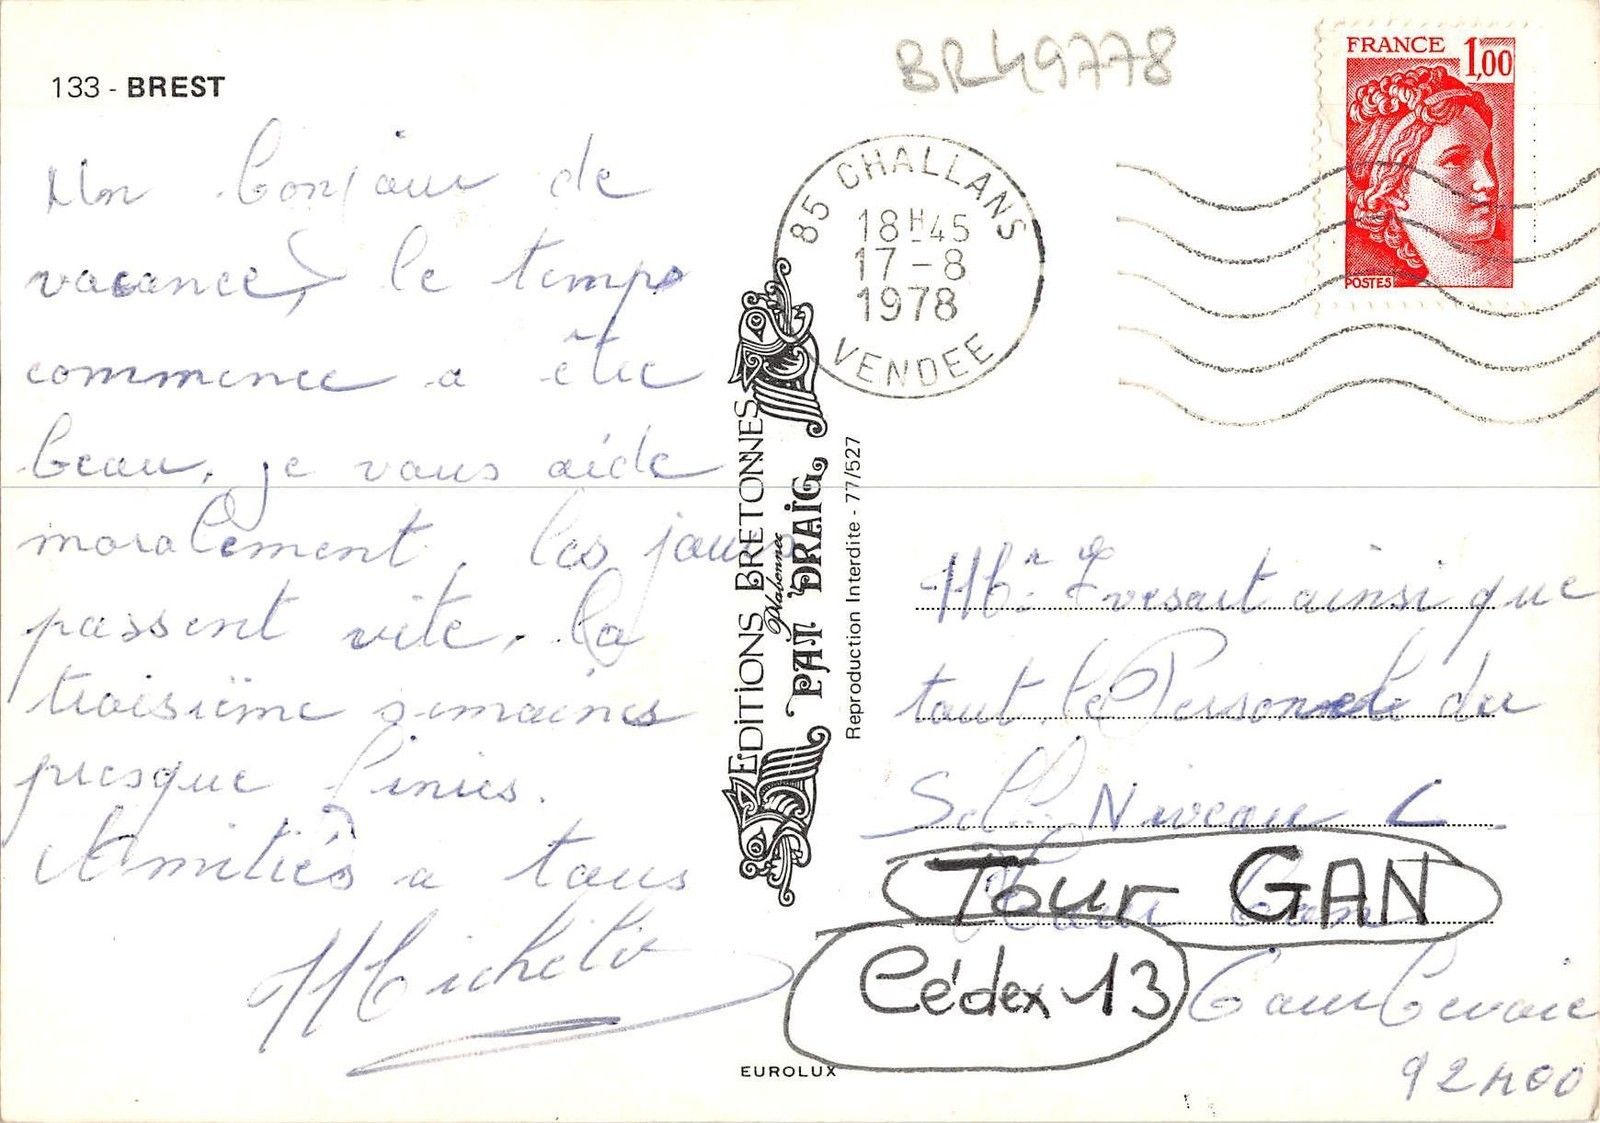 133 - BREST
BR49778
FRANCE 1,00
POSTES
85 CHALLANS
18H45
17-8
1978
VENDEE
Un bonjour de
vacances, le temps
commence a être
beau, je vous aide
moralement, les jours
passent vite, la
troisième semaines
presque finies.
Amitiés a tous
EDITIONS BRETONNES
Plabennec
PAT DRAIG
Reproduction Interdite - 77/527
ainsi que
tout le Personnel du
Self Niveau C
Tour GAN
Cédex 13 Courbevoie
92400
EUROLUX